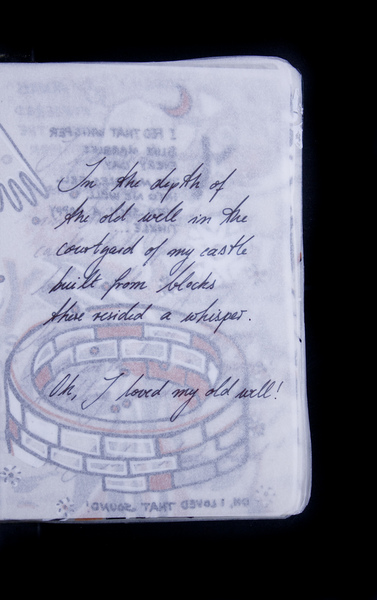 In the depth of
the old well in the
courtyard of my castle
built from blocks
there resided a whisper.
Oh, I loved my old well!
I FED THAT WHISPER
BLUE MARBLES
EVERY DAY
OH, I LOVED THAT SOUND!